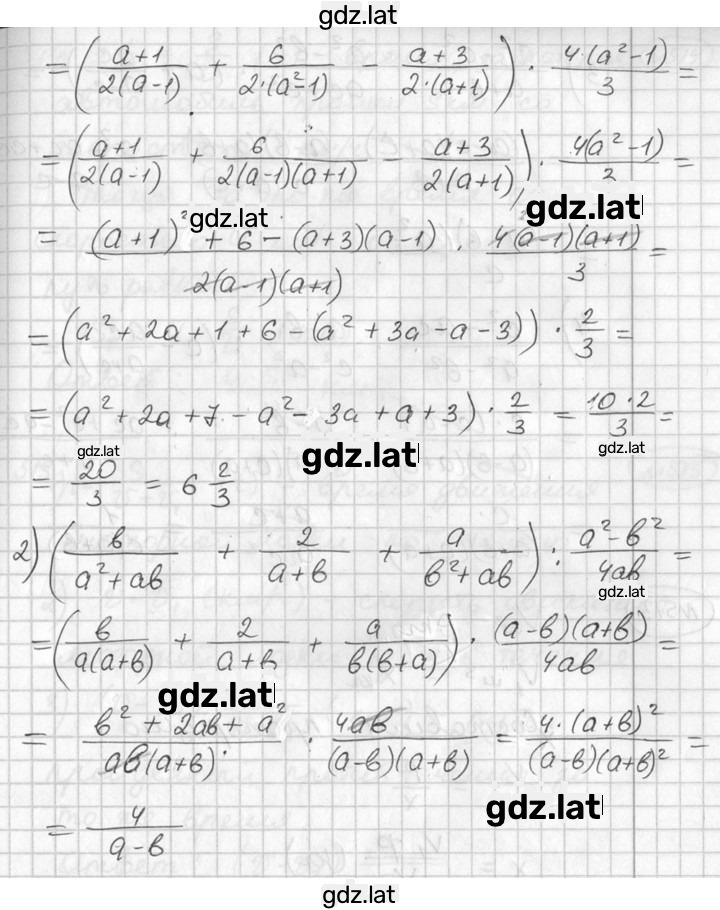 gdz.lat
= ( (a+1)/(2(a-1)) + 6/(2·(a²-1)) - (a+3)/(2·(a+1)) ) · (4·(a²-1))/3 =
= ( (a+1)/(2(a-1)) + 6/(2(a-1)(a+1)) - (a+3)/(2(a+1)) ) · (4(a²-1))/2 =
gdz.lat gdz.lat
= ((a+1)² + 6 - (a+3)(a-1))/(2(a-1)(a+1)) · (4(a-1)(a+1))/3 =
= (a² + 2a + 1 + 6 - (a² + 3a - a - 3)) · 2/3 =
= (a² + 2a + 7 - a² - 3a + a + 3) · 2/3 = (10·2)/3 =
gdz.lat gdz.lat gdz.lat
= 20/3 = 6 2/3
2) ( в/(a²+aв) + 2/(a+в) + a/(в²+aв) ) : (a²-в²)/(4aв) =
gdz.lat
= ( в/(a(a+в)) + 2/(a+в) + a/(в(в+a)) ) · ((a-в)(a+в))/(4aв) =
gdz.lat
= (в² + 2aв + a²)/(aв(a+в)) · (4aв)/((a-в)(a+в)) = (4·(a+в)²)/((a-в)(a+в)²) =
gdz.lat
= 4/(a-в)
gdz.lat